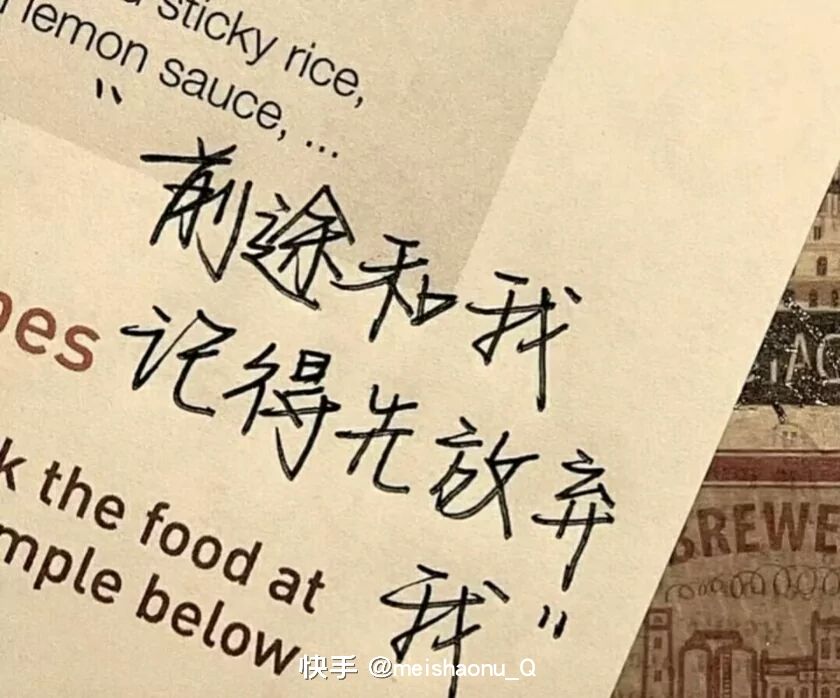 sticky rice,
lemon sauce, ...
“前途和我
记得先放弃
我”
k the food at
mple below
BREWE
快手 @meishaonu_Q